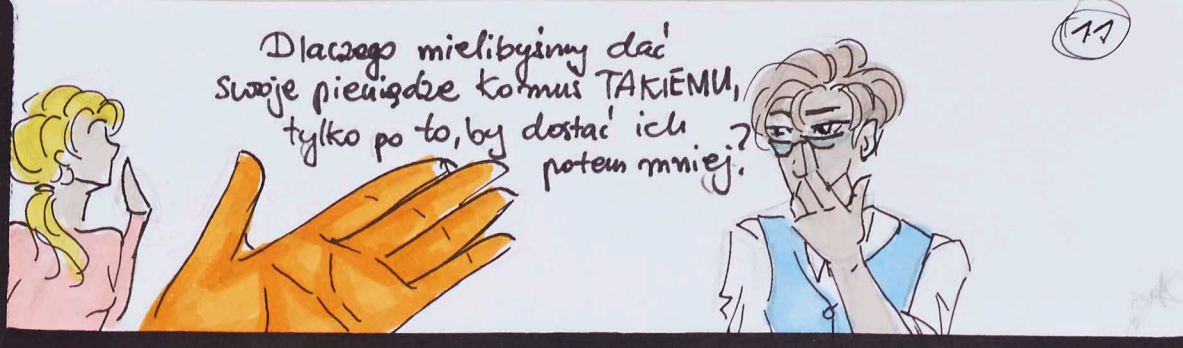 11
Dlaczego mielibyśmy dać
swoje pieniądze komuś TAKIEMU,
tylko po to, by dostać ich
potem mniej?